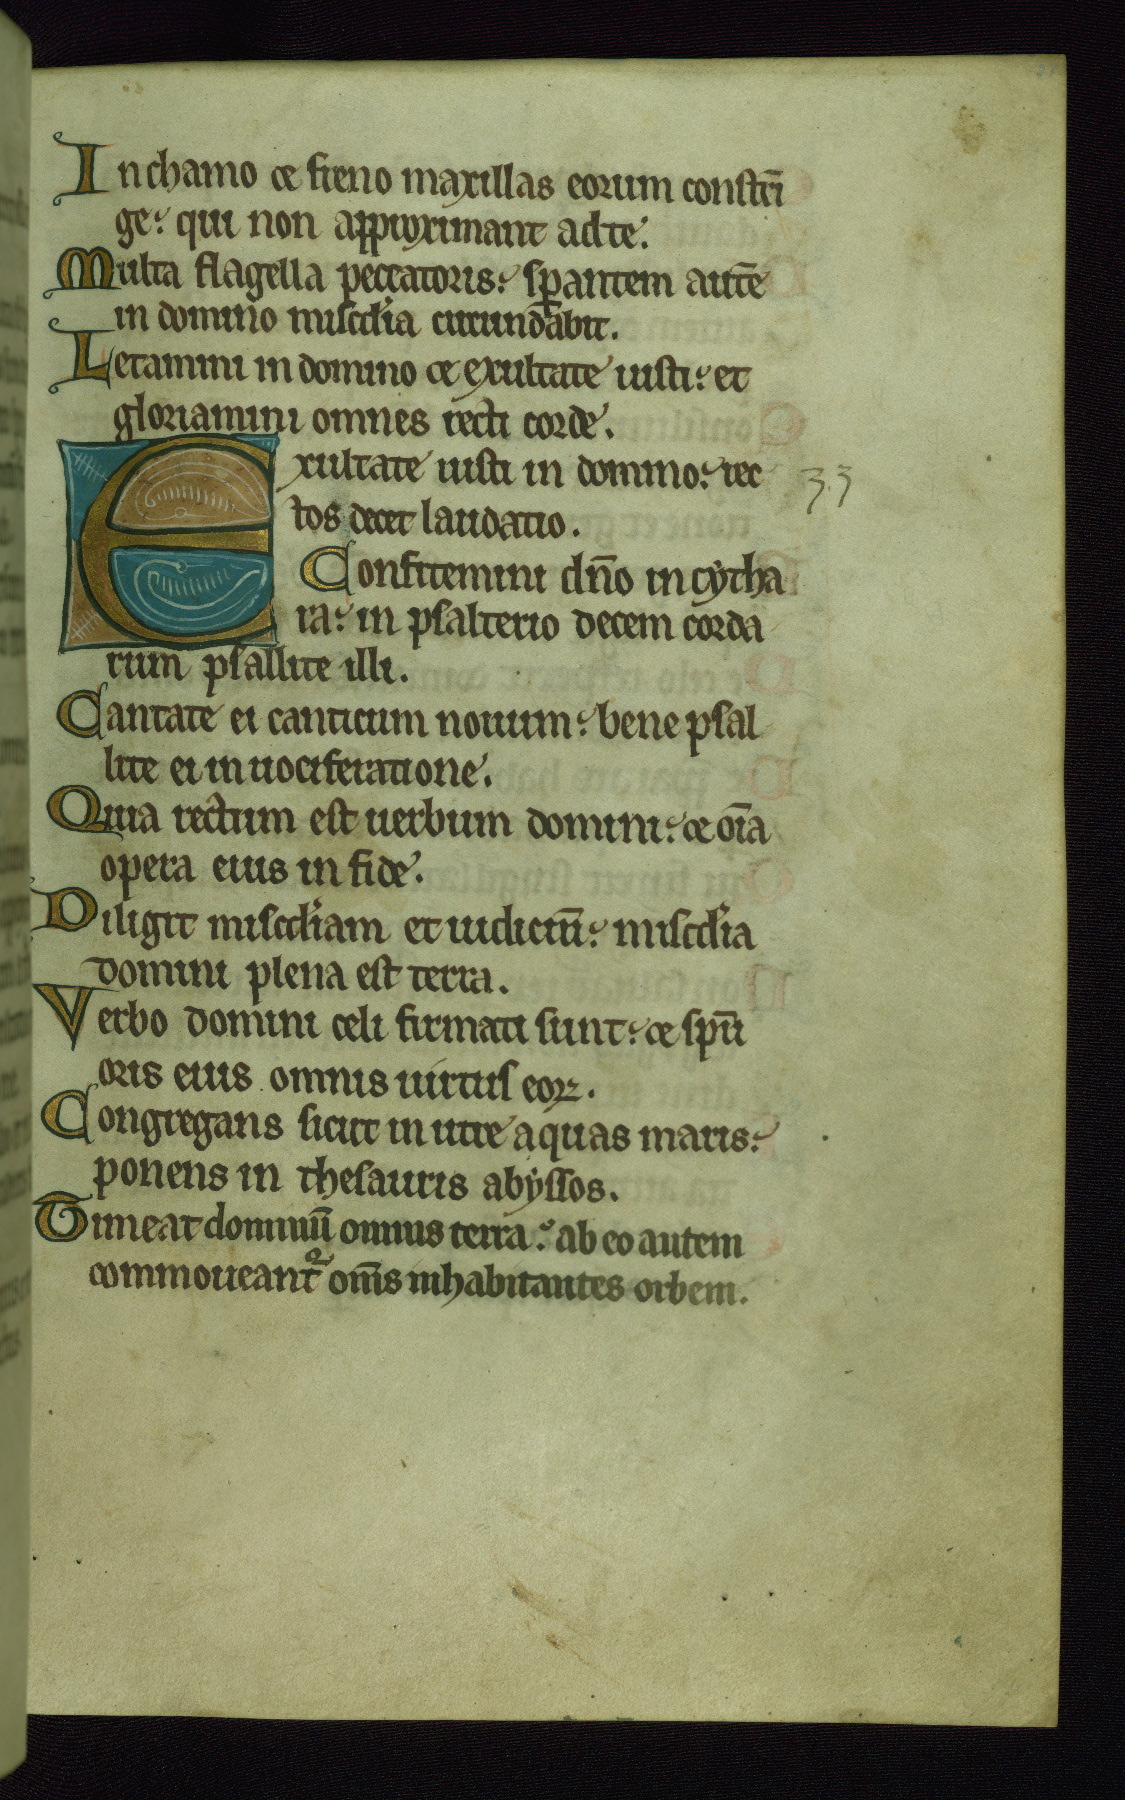 In chamo ⁊ freno maxillas eorum constrī
ge: qui non approximant ad te.
Multa flagella peccatoris: sꝑantem autē
in domino misc̄dia circundabit.
Letamini in domino ⁊ exultate iusti: et
gloriamini omnes recti corde.
Exultate iusti in domino: rec 33
tos decet laudatio.
Confitemini dn̄o in cytha
ra: in psalterio decem corda
rum psallite illi.
Cantate ei canticum nouum: bene psal
lite ei in uociferatione.
Quia rectum est uerbum domini: ⁊ oīa
opera eius in fide.
Diligit misc̄diam et iudiciū: misc̄dia
domini plena est terra.
Verbo domini celi firmati sunt: ⁊ spū
oris eius omnis uirtus eoꝝ.
Congregans sicut in utre aquas maris:
ponens in thesauris abyssos.
Timeat dominū omnis terra: ab eo autem
commoueant᷑ om̄s inhabitantes orbem.